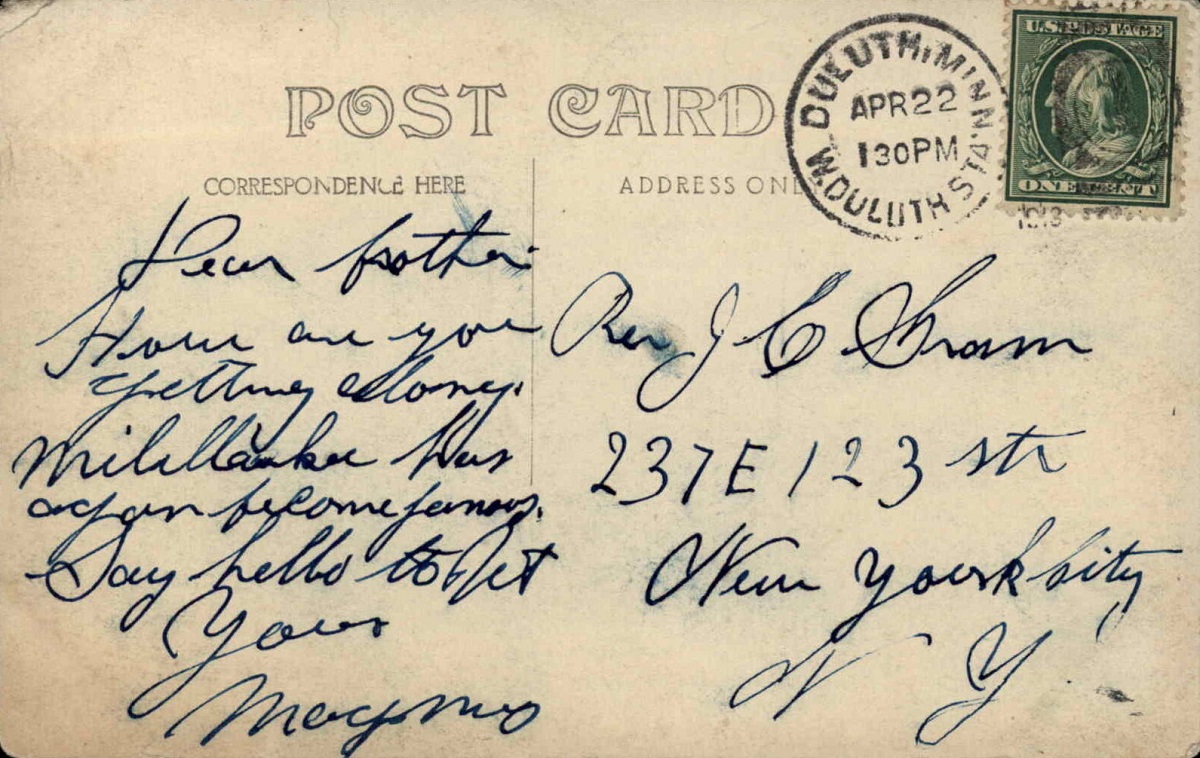 POST CARD
CORRESPONDENCE HERE
ADDRESS ONL
DULUTH, MINN.
APR 22
130PM
W. DULUTH STA.
U.S. POSTAGE
ONE CENT
Dear brother:
How are you
getting along.
has
again become famous.
Say hello to
Yours
Magnus
Rev J C
237 E 123 str
New Yourk City
N Y